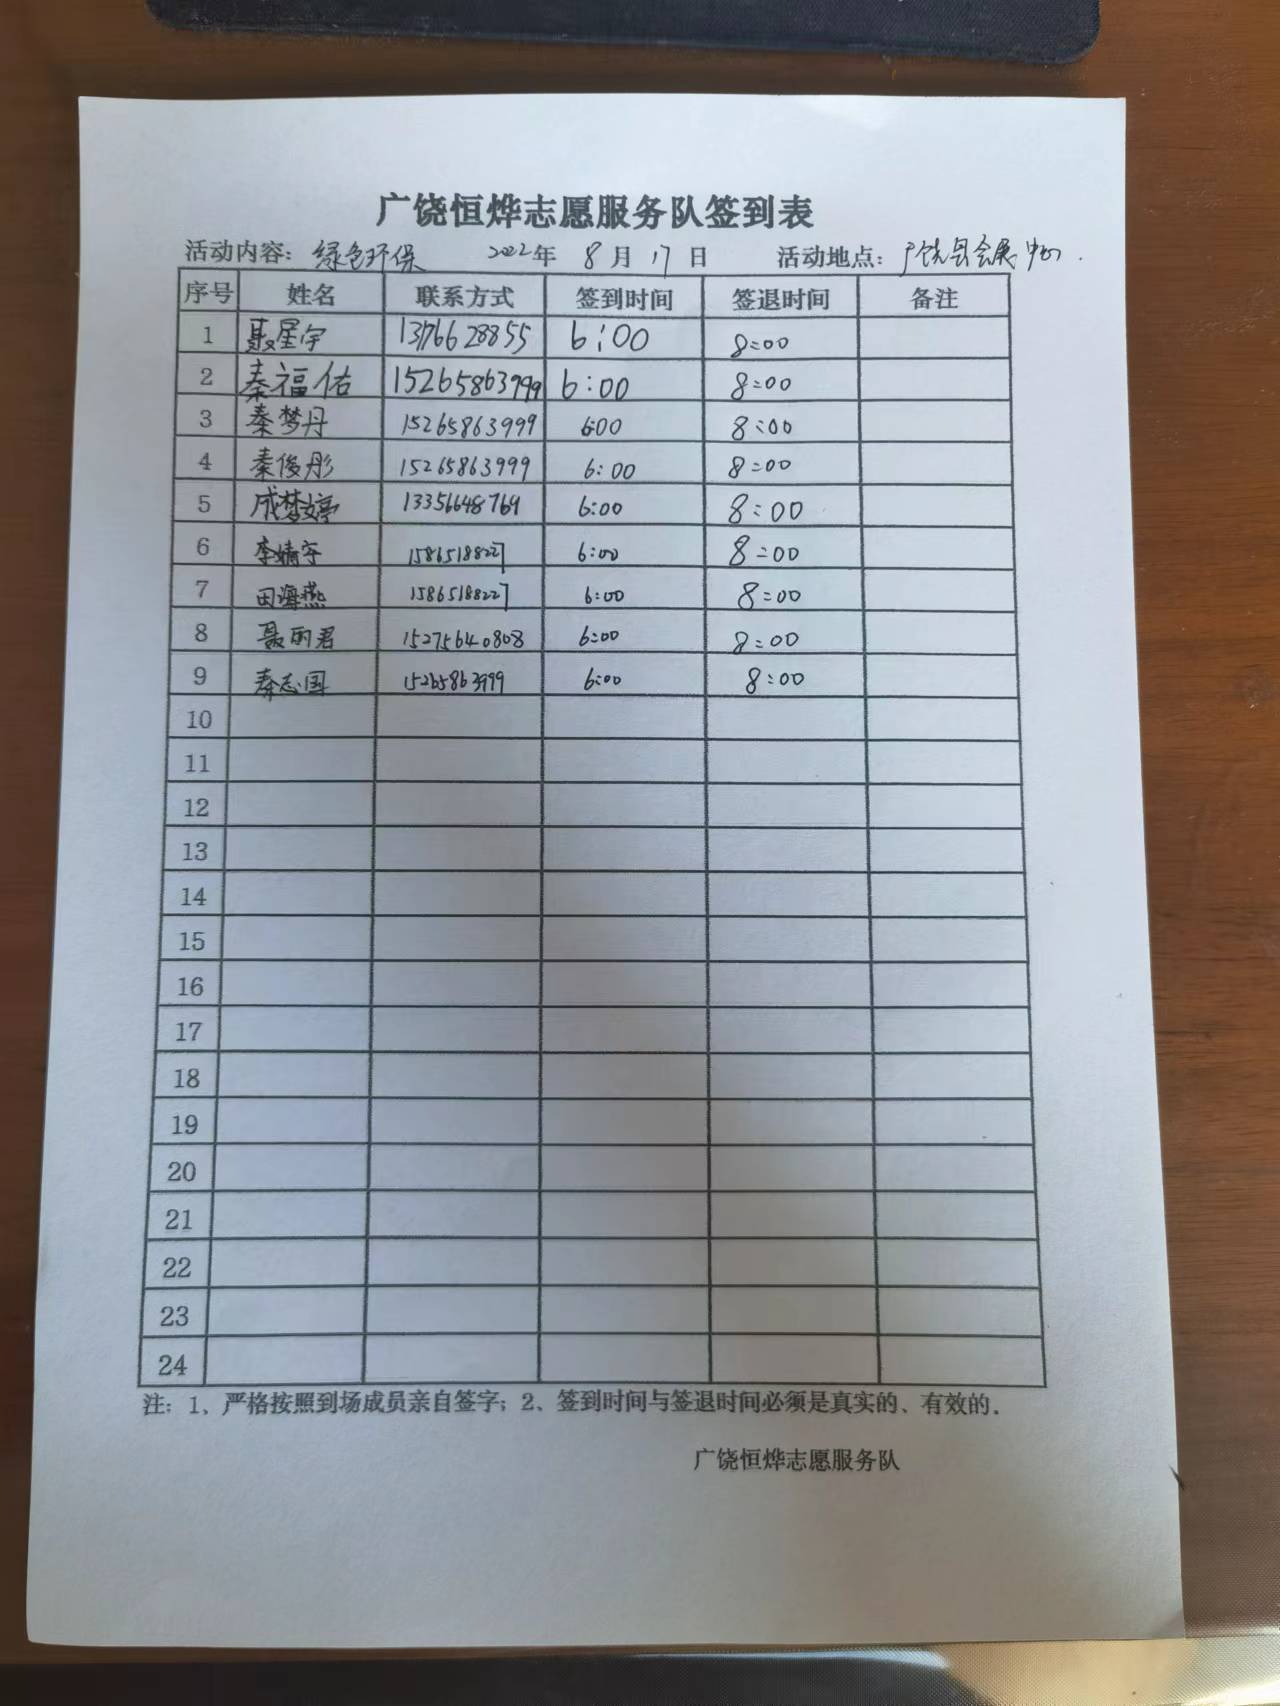 广饶恒烨志愿服务队签到表
活动内容：绿色环保 2022年 8月17日 活动地点：广饶县会展中心.
序号 姓名 联系方式 签到时间 签退时间 备注
1 聂星宇 13176628855 6:00 8:00
2 秦福佑 15265863999 6:00 8:00
3 秦梦丹 15265863999 6:00 8:00
4 秦俊彤 15265863999 6:00 8:00
5 成梦婷 13356648769 6:00 8:00
6 李婧宇 15865188227 6:00 8:00
7 田海燕 15865188227 6:00 8:00
8 聂丽君 15275640808 6:00 8:00
9 秦志国 15265863999 6:00 8:00
10
11
12
13
14
15
16
17
18
19
20
21
22
23
24
注：1、严格按照到场成员亲自签字；2、签到时间与签退时间必须是真实的、有效的.
广饶恒烨志愿服务队